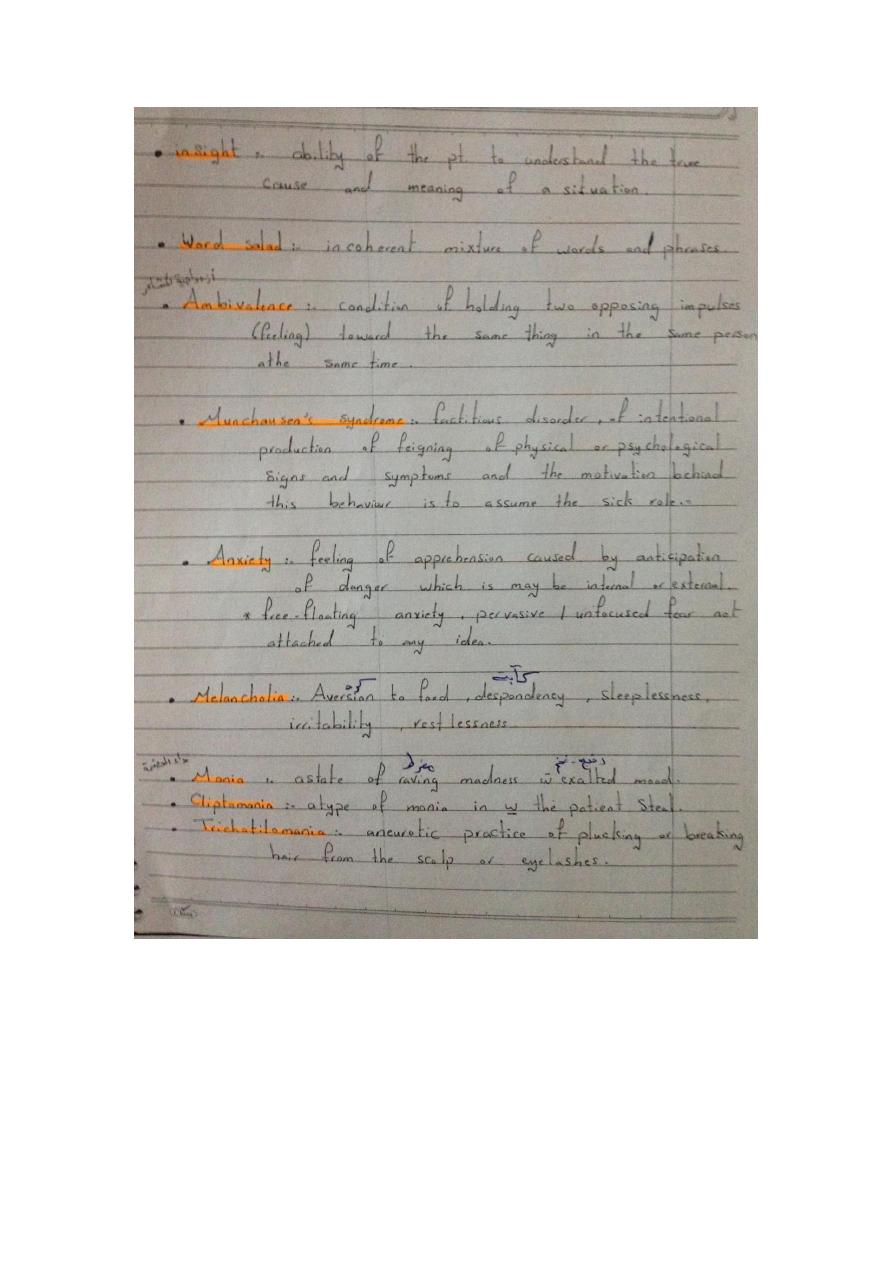 • insight :- ability of the pt. to understand the true
cause and meaning of a situation.
• Word salad :- incoherent mixture of words and phrases.
ازدواجية المشاعر
• Ambivalence :- condition of holding two opposing impulses
(feeling) toward the same thing in the same person
athe same time.
• Munchausen's syndrome :- factitious disorder, of intentional
production of feigning of physical or psychological
signs and symptoms and the motivation behind
this behaviour is to assume the sick role.-
• Anxiety :- feeling of apprehension caused by anticipation
of danger which is may be internal or external.
* free-floating anxiety, pervasive / unfocused fear not
attached to any idea.
كآبة
• Melancholia :- Aversion to food, despondency, sleeplessness,
irritability, restlessness
• Mania :- astate of raving madness w̄ exalted mood.
• Cliptomania :- atype of mania in w the patient Steal.
• Trichotilomania :- aneurotic practice of plucking or breaking
hair from the scalp or eyelashes.